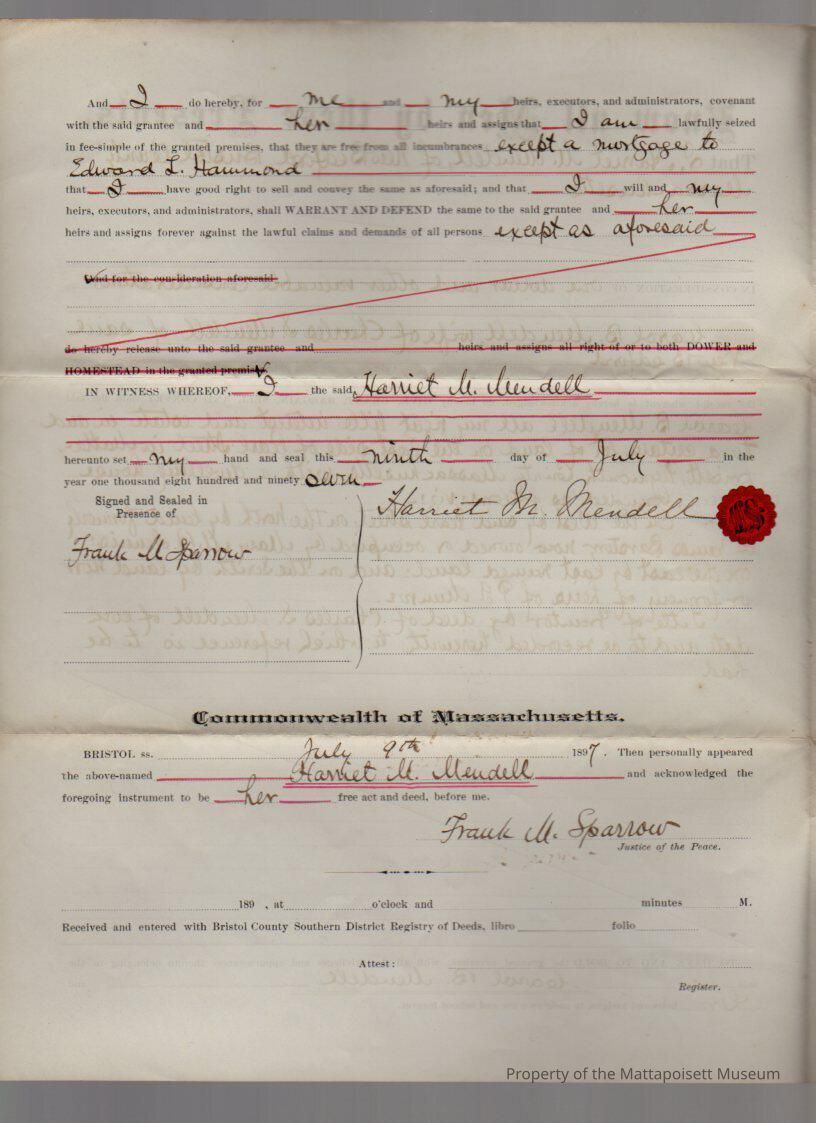 And I do hereby, for me and my heirs, executors, and administrators, covenant
with the said grantee and her heirs and assigns that I am lawfully seized
in fee-simple of the granted premises, that they are free from all incumbrances except a mortgage to
Edward L. Hammond
that I have good right to sell and convey the same as aforesaid; and that I will and my
heirs, executors, and administrators, shall WARRANT AND DEFEND the same to the said grantee and her
heirs and assigns forever against the lawful claims and demands of all persons except as aforesaid
And for the consideration aforesaid
do hereby release unto the said grantee and heirs and assigns all right of or to both DOWER and
HOMESTEAD in the granted premises
IN WITNESS WHEREOF, I the said Harriet M. Mendell
hereunto set my hand and seal this ninth day of July in the
year one thousand eight hundred and ninety seven
Signed and Sealed in
Presence of
Harriet M. Mendell
Frank M Sparrow
Commonwealth of Massachusetts.
BRISTOL ss. July 9th 1897. Then personally appeared
the above-named Harriet M. Mendell and acknowledged the
foregoing instrument to be her free act and deed, before me.
Frank M. Sparrow
Justice of the Peace.
189 , at o'clock and minutes M.
Received and entered with Bristol County Southern District Registry of Deeds, libro folio
Attest:
Register.
Property of the Mattapoisett Museum